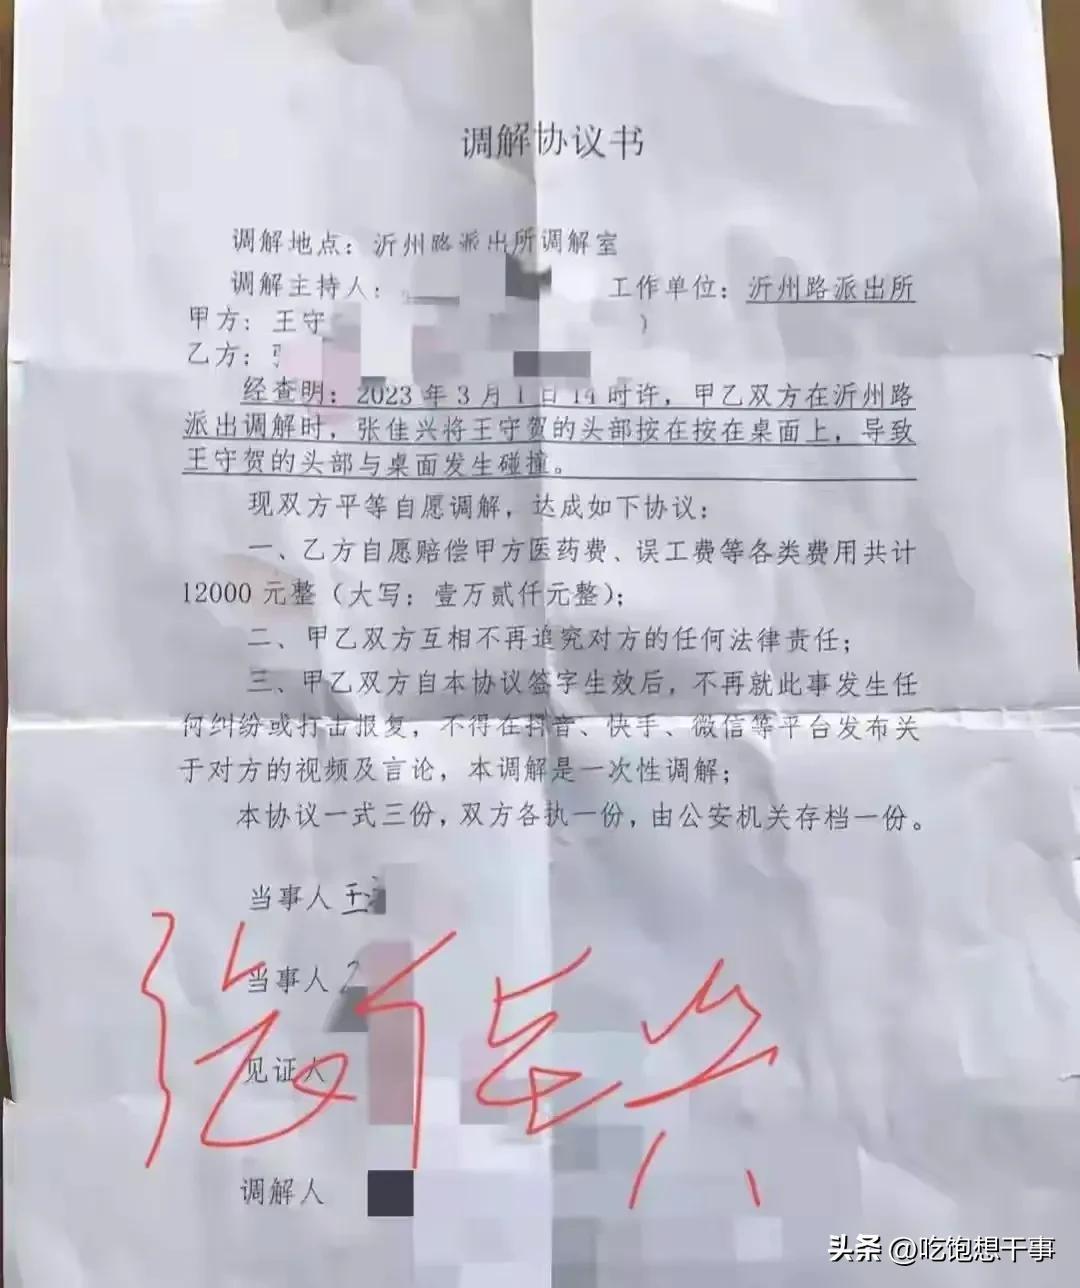 调解协议书
调解地点：沂州路派出所调解室
调解主持人： 工作单位：沂州路派出所
甲方：王守 ）
乙方：
经查明：2023年3月1日14时许，甲乙双方在沂州路
派出调解时，张佳兴将王守贺的头部按在按在桌面上，导致
王守贺的头部与桌面发生碰撞。
现双方平等自愿调解，达成如下协议：
一、乙方自愿赔偿甲方医药费、误工费等各类费用共计
12000元整（大写：壹万贰仟元整）；
二、甲乙双方互相不再追究对方的任何法律责任；
三、甲乙双方自本协议签字生效后，不再就此事发生任
何纠纷或打击报复，不得在抖音、快手、微信等平台发布关
于对方的视频及言论，本调解是一次性调解；
本协议一式三份，双方各执一份，由公安机关存档一份。
当事人 王
当事人
见证人
张佳兴
调解人
头条 @吃饱想干事